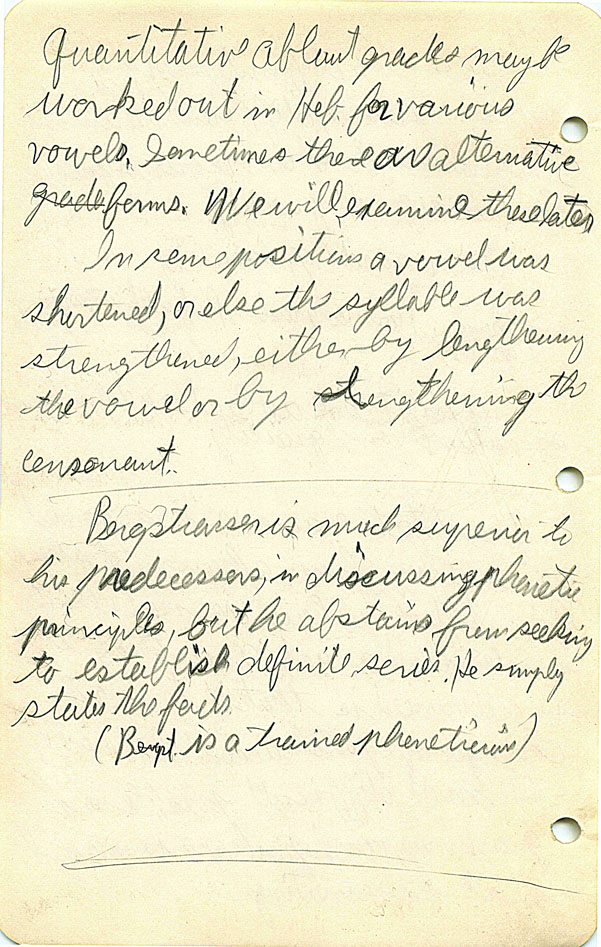 Quantitative ablaut grades may be
worked out in Heb. for various
vowels. Sometimes there are alternative
grade forms. We will examine these later
In some positions a vowel was
shortened, or else the syllable was
strengthened, either by lengthening
the vowel or by strengthening the
consonant.
Bergstrasser is much superior to
his predecessors, in discussing phonetic
principles, but he abstains from seeking
to establish definite series. He simply
states the facts.
(Bergst. is a trained phonetician)